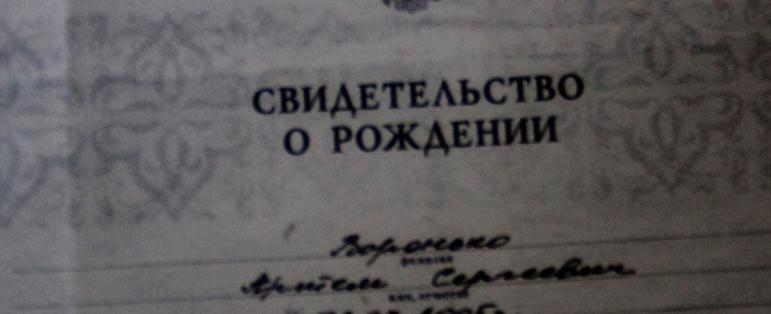 СВИДЕТЕЛЬСТВО
О РОЖДЕНИИ
Воронько
фамилия
Сергеевич
имя, отчество